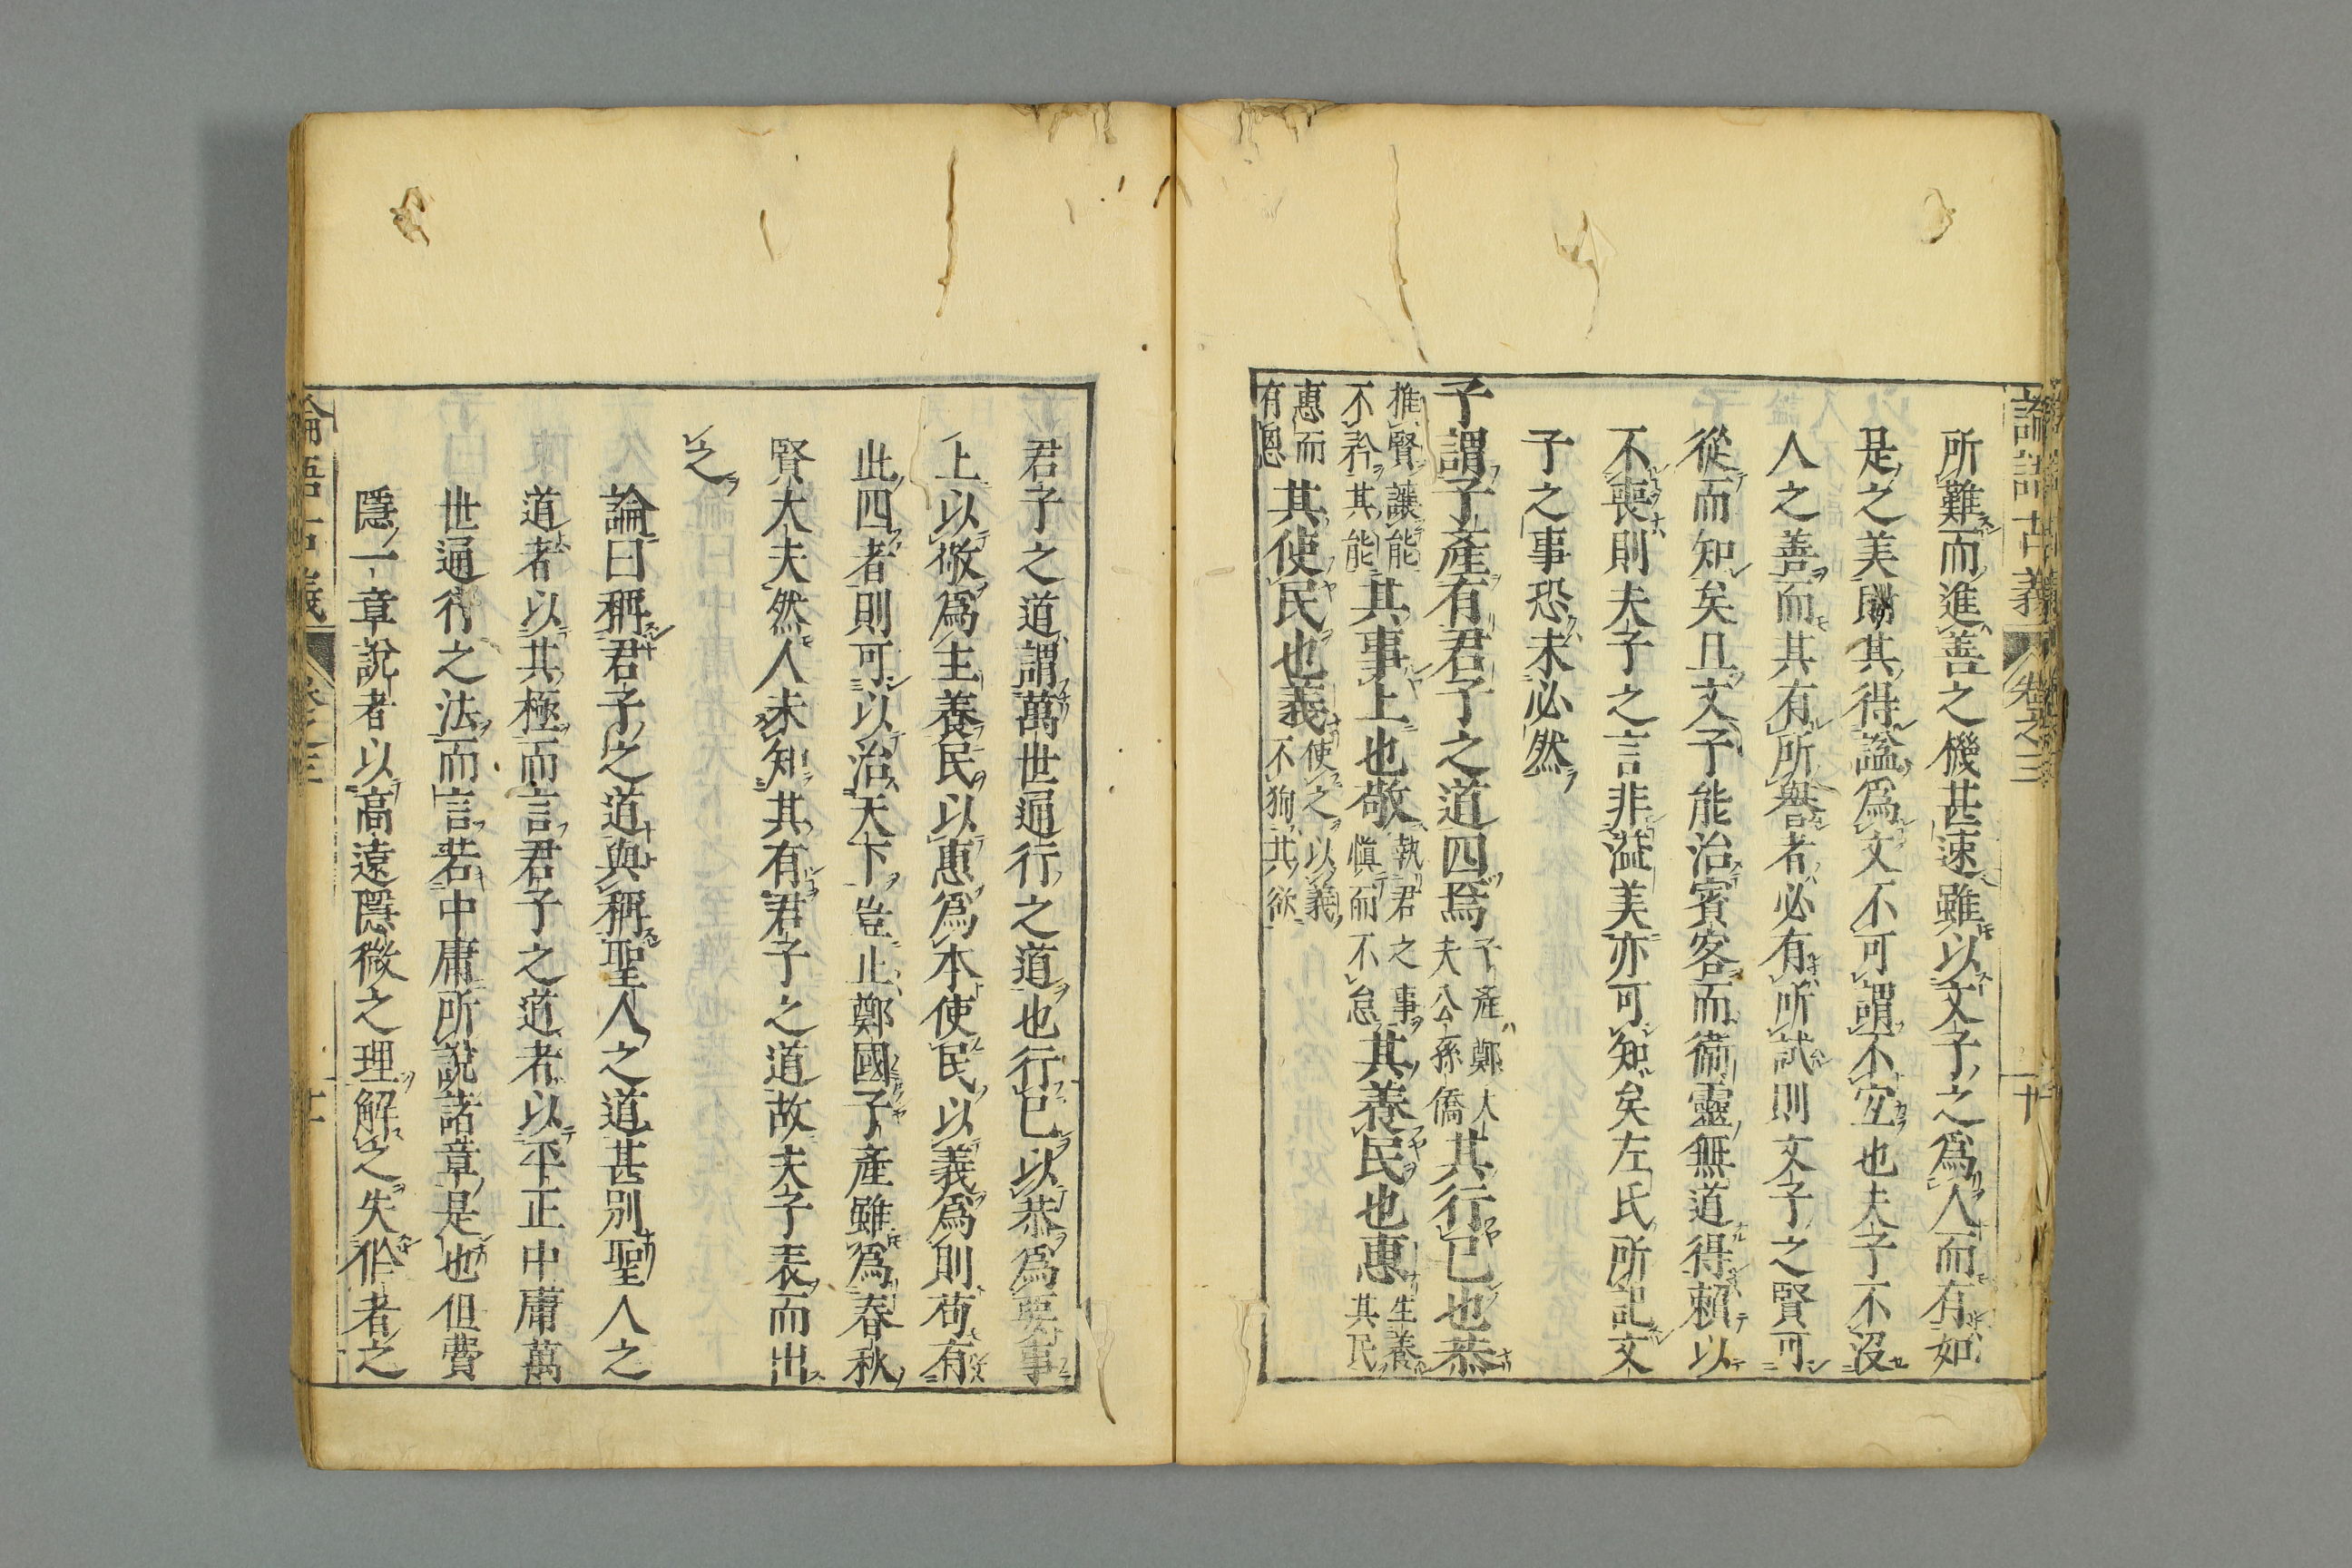 論語古義 卷之三 十
所難而進善之機甚速雖以文子之爲人而有如
是之美則其得謚爲文不可謂不宜也夫子不沒
人之善而其有所譽者必有所試則文子之賢可
從而知矣且文子能治賓客而衞靈無道得賴以
不喪則夫子之言非溢美亦可知矣左氏所記文
子之事恐未必然
子謂子產有君子之道四焉子產鄭大夫公孫僑其行己也恭
推賢讓能不矜其能其事上也敬執君之事愼而不怠其養民也惠生養其民
惠而有恩其使民也義使之以義不狥其欲
君子之道謂萬世通行之道也行己以恭爲要事
上以敬爲主養民以惠爲本使民以義爲則苟有
此四者則可以治天下豈止鄭國子產雖爲春秋
賢大夫然人未知其有君子之道故夫子表而出
之
論曰稱君子之道與稱聖人之道甚別聖人之
道者以其極而言君子之道者以平正中庸萬
世通行之法而言若中庸所說諸章是也但費
隱一章說者以高遠隱微之理解之失作者之
論語古義 卷之三